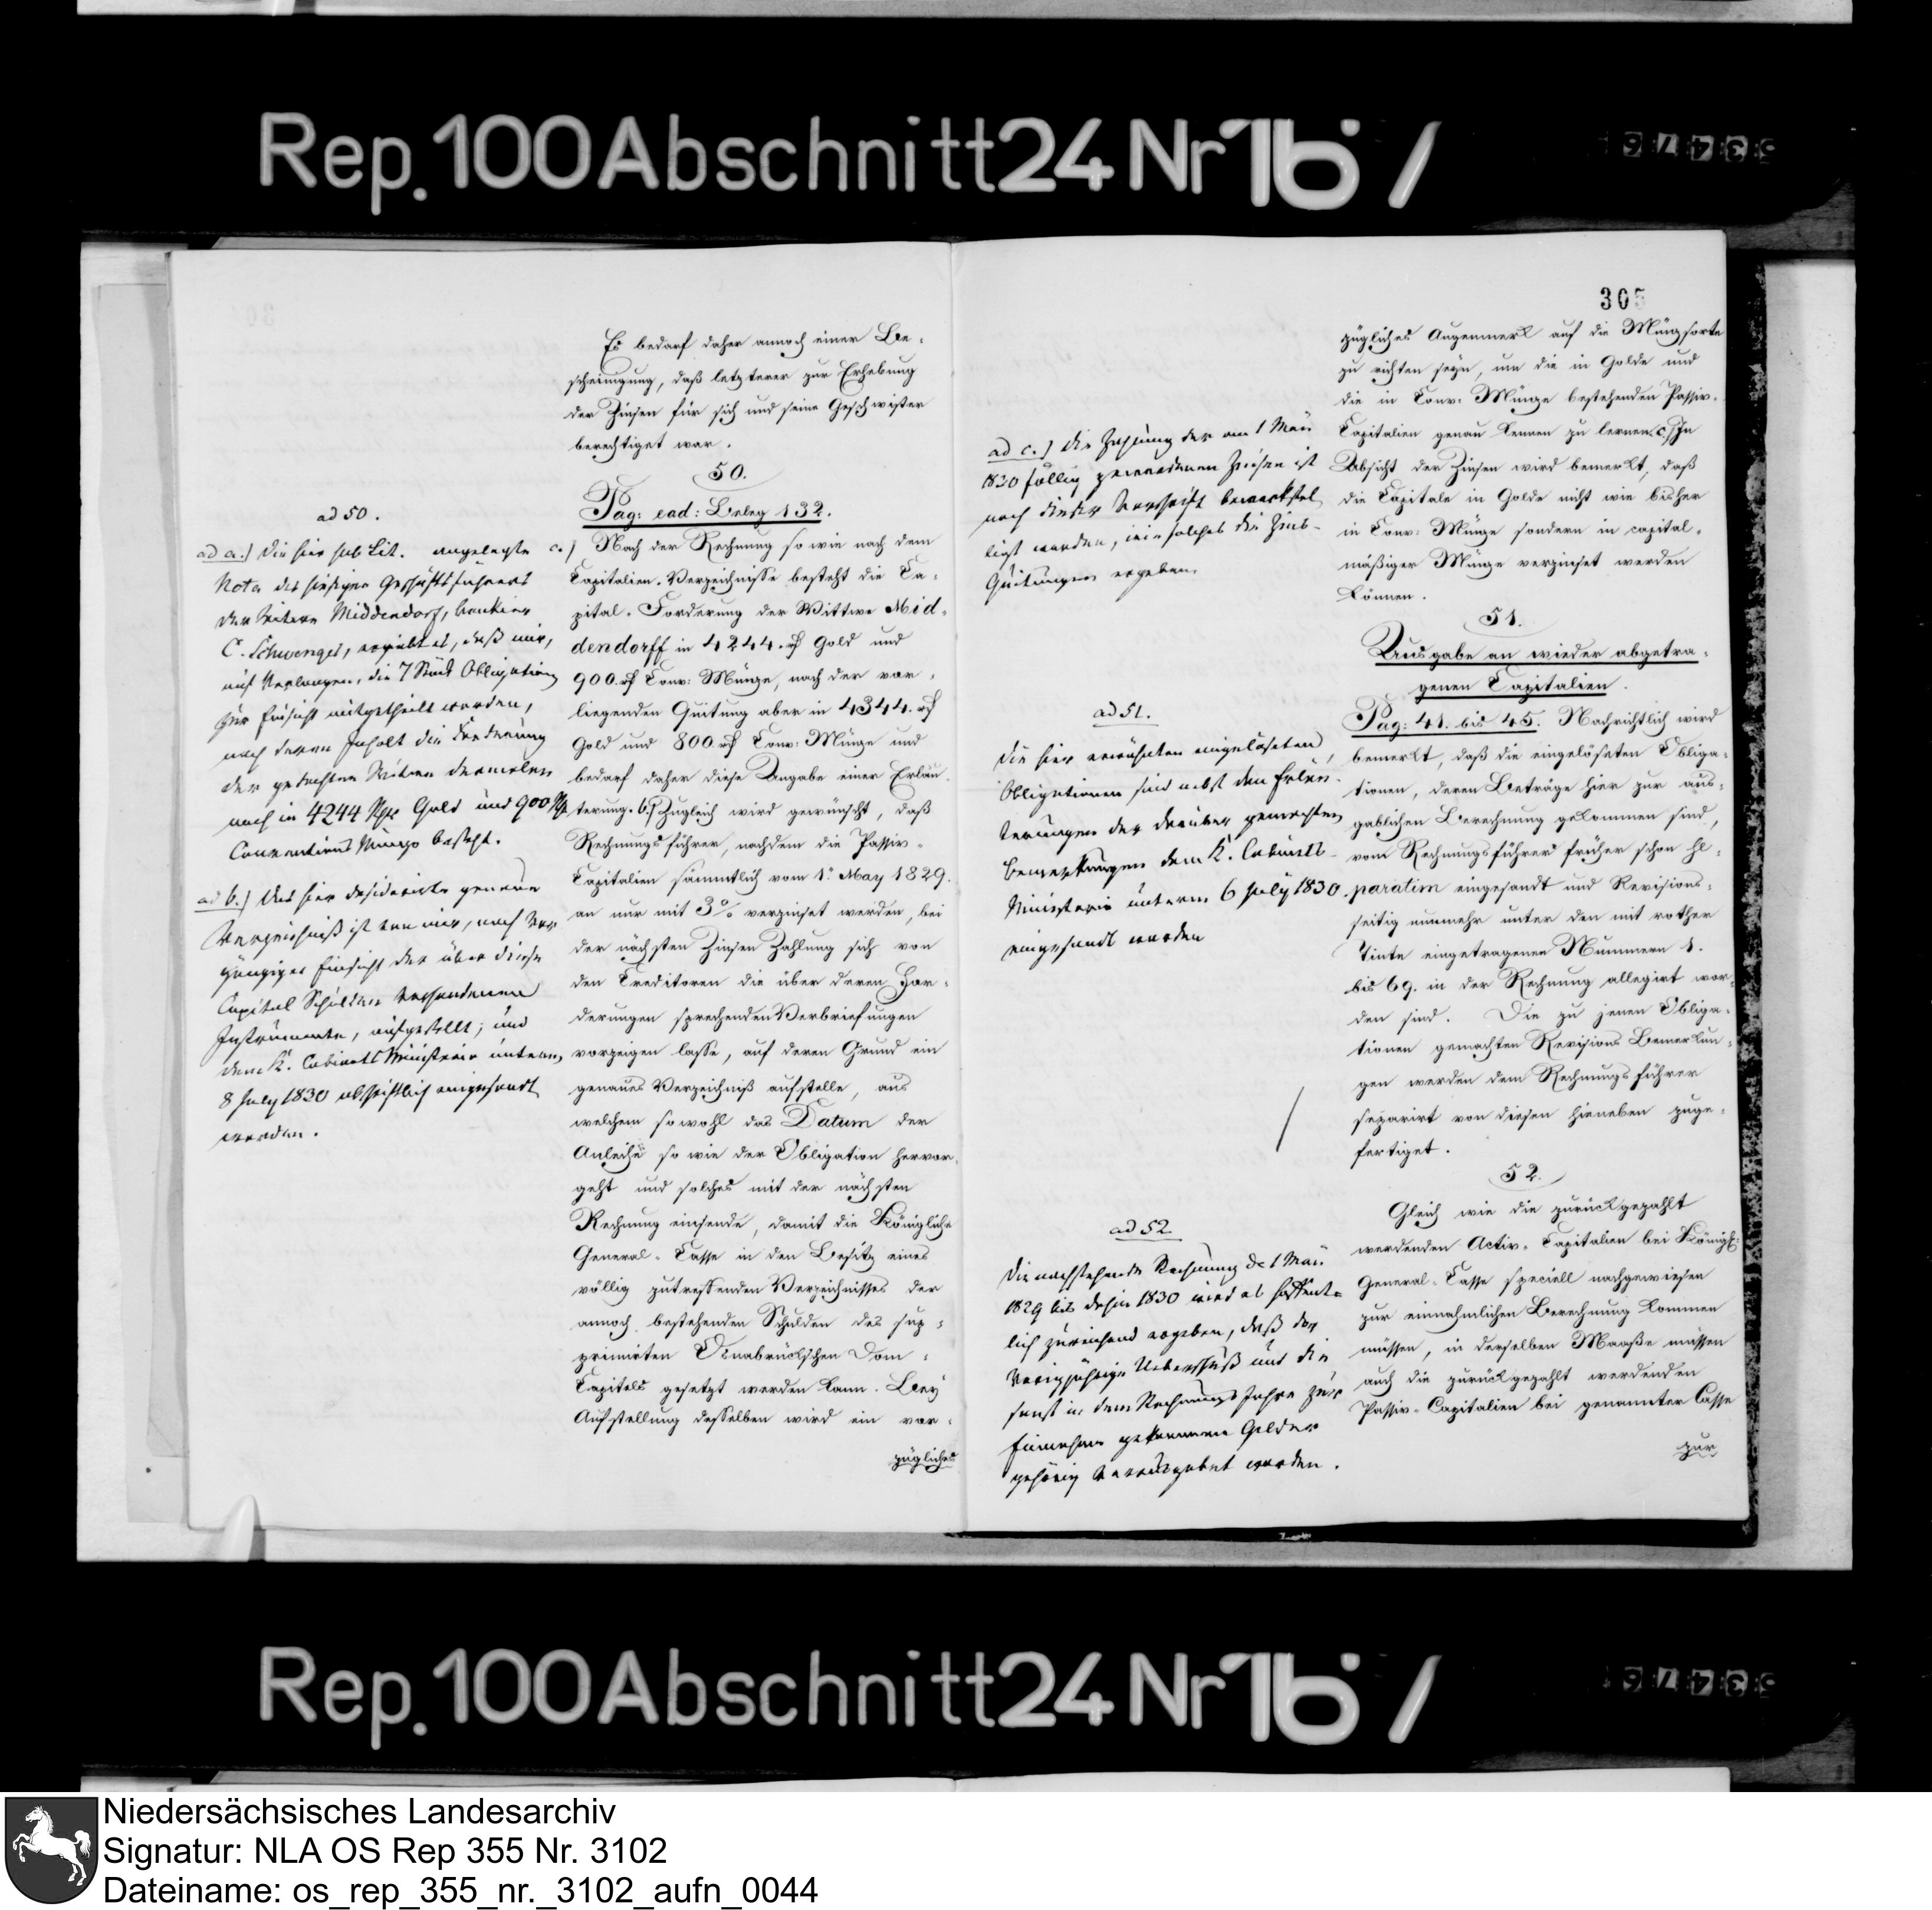 Rep. 100 Abschnitt 24 Nr 167
Es bedarf daher annoch einer Be-
scheinigung, daß letzterer zur Erhebung
der Zinsen für sich und seine Geschwister
berechtiget war.
50.
Pag: ead: Beleg 132.
a.) Nach der Rechnung so wie nach dem
Capitalien-Verzeichnisse besteht die Ca-
pital-Forderung der Wittwe Mid-
dendorff in 4244. rf Gold und
900. rf Conv: Münze, nach der vor-
liegenden Quitung aber in 4344. rf
Gold und 800. rf Conv: Münze und
bedarf daher diese Angabe einer Erläu-
terung. b.) Zugleich wird gewünscht, daß
Rechnungsführer, nachdem die Passiv-
Capitalien sämmtlich vom 1. May 1829.
an nur mit 3% verzinset werden, bei
der nächsten Zinsen Zahlung sich von
den Creditoren die über deren For-
derungen sprechenden Verbriefungen
vorzeigen lasse, auf deren Grund ein
genaues Verzeichniß aufstelle, aus
welchem sowohl das Datum der
Anleihe so wie der Obligation hervor-
geht und solches mit der nächsten
Rechnung einsende, damit die Königliche
General-Casse in den Besitz eines
völlig zutreffenden Verzeichnisses der
annoch bestehenden Schulden des sup-
primirten Osnabrückschen Dom-
Capitels gesetzt werden kann. Bey
Aufstellung desselben wird ein vor-
zügliches
ad 50.
ad a.) Die hier sub Lit. angelegte
Nota des hiesigen Geschäftsführers
der Witwe Middendorf, Bankier
C. Schwenger, ergiebt es, daß mir,
auf Verlangen, die 7 Stück Obligationen
zur Einsicht mitgetheilt worden,
nach deren Inhalt die Forderung
der gedachten Witwe dermalen
noch in 4244 Rth Gold und 900 Rth
Conventions Münze besteht.
ad b.) Das hier desiderirte genaue
Verzeichniß ist von mir, nach vor-
gängiger Einsicht der über diese
Capital Schulden vorhandenen
Instrumente, aufgestellt; und
dem K. Cabinets Ministerio unterm
8 July 1830 abschriftlich eingesandt
worden.
305
zügliches Augenmerk auf die Münzsorte
zu richten seyn, um die in Golde und
die in Conv: Münze bestehenden Passiv-
Capitalien genau kennen zu lernen. c.) In
Absicht der Zinsen wird bemerkt, daß
die Capitale in Golde nicht wie bisher
in Conv: Münze sondern in capital-
mäßiger Münze verzinset werden
können.
51.
Ausgabe an wieder abgetra-
genen Capitalien.
Pag: 41. bis 45. Nachrichtlich wird
bemerkt, daß die eingelöseten Obliga-
tionen, deren Beträge hier zur aus-
gablichen Berechnung gekommen sind,
vom Rechnungsführer früher schon se-
paratim eingesandt und Revisions-
seitig nunmehr unter den mit rother
Tinte eingetragenen Nummern 1.
bis 69. in der Rechnung allegirt wor-
den sind. Die zu jenen Obliga-
tionen gemachten Revisions Bemerkun-
gen werden dem Rechnungsführer
separirt von diesen hieneben zuge-
fertiget.
52.
Gleich wie die zurückgezahlt
werdenden Activ-Capitalien bei Königl:
General-Casse speciell nachgewiesen
zur einnahmlichen Berechnung kommen
müssen, in derselben Maaße müssen
auch die zurückgezahlt werdenden
Passiv-Capitalien bei genannter Casse
zur
ad c.) Die Zahlung der am 1 Mai
1830 fällig gewordenen Zinsen ist
nach dieser Vorschrift bewerkstel
ligt worden, wie solches die Zins-
Quitungen ergeben.
ad 51.
Die hier erwähnten eingelöseten
Obligationen sind nebst den Erläu-
terungen der darüber gemachten
Bemerkungen dem K. Cabinets-
Ministerio unterm 6 July 1830.
eingesandt worden
ad 52
Die nachstehende Rechnung de 1 Mai
1829 bis dahin 1830 wird es hoffent-
lich zureichend ergeben, daß der
vorigjährige Ueberschuß und die
sonst in dem Rechnungs Jahre zur
Einnahme gekommene Gelder
gehörig verausgabet worden.
Rep. 100 Abschnitt 24 Nr 167
Niedersächsisches Landesarchiv
Signatur: NLA OS Rep 355 Nr. 3102
Dateiname: os_rep_355_nr._3102_aufn_0044